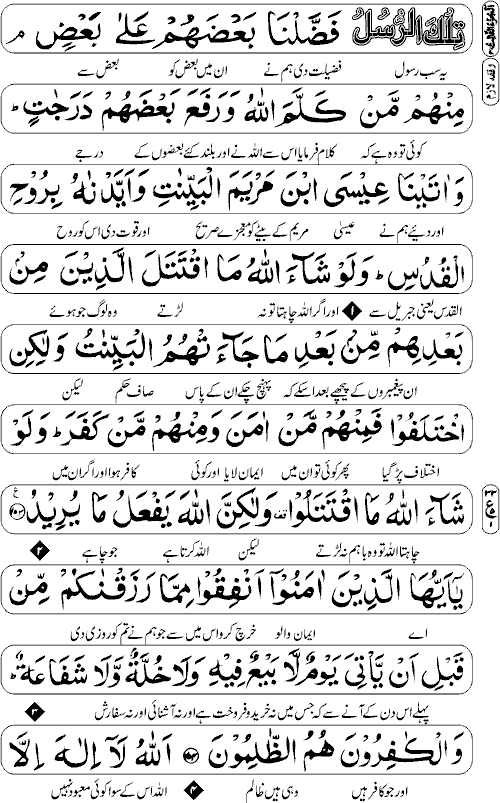 تِلْكَ الرُّسُلُ فَضَّلْنَا بَعْضَهُمْ عَلٰى بَعْضٍ ۘ
یہ سب رسول فضیلت دی ہم نے ان میں بعض کو بعض سے
مِنْهُمْ مَّنْ كَلَّمَ اللّٰهُ وَرَفَعَ بَعْضَهُمْ دَرَجٰتٍ ؕ
کوئی تو وہ ہے کہ کلام فرمایا اس سے اللہ نے اور بلند کئے بعضوں کے درجے
وَاٰتَيْنَا عِيْسَى ابْنَ مَرْيَمَ الْبَيِّنٰتِ وَاَيَّدْنٰهُ بِرُوْحِ
اور دئیے ہم نے عیسیٰ مریم کے بیٹے کو معجزے صریح اور قوت دی اس کو روح
الْقُدُسِ ؕ وَلَوْ شَآءَ اللّٰهُ مَا اقْتَتَلَ الَّذِيْنَ مِنْ
القدس یعنی جبریل سے ۱ اور اگر اللہ چاہتا تو نہ لڑتے وہ لوگ جو ہوئے
بَعْدِهِمْ مِّنْ بَعْدِ مَا جَآءَتْهُمُ الْبَيِّنٰتُ وَلٰكِنِ
ان پیغمبروں کے پیچھے بعد اسکے کہ پہنچ چکے ان کے پاس صاف حکم لیکن
اخْتَلَفُوْا فَمِنْهُمْ مَّنْ اٰمَنَ وَمِنْهُمْ مَّنْ كَفَرَ ؕ وَلَوْ
اختلاف پڑ گیا پھر کوئی تو ان میں ایمان لایا اور کوئی کافر ہوا اور اگر ان میں
شَآءَ اللّٰهُ مَا اقْتَتَلُوْا وَلٰكِنَّ اللّٰهَ يَفْعَلُ مَا يُرِيْدُ ۲۵۳
چاہتا اللہ تو وہ باہم نہ لڑتے لیکن اللہ کرتا ہے جو چاہے ۲
يٰۤاَيُّهَا الَّذِيْنَ اٰمَنُوْۤا اَنْفِقُوْا مِمَّا رَزَقْنٰكُمْ مِّنْ
اے ایمان والو خرچ کرو اس میں سے جو ہم نے تم کو روزی دی
قَبْلِ اَنْ يَّاْتِيَ يَوْمٌ لَّا بَيْعٌ فِيْهِ وَلَا خُلَّةٌ وَّلَا شَفَاعَةٌ ؕ
پہلے اس دن کے آنے سے کہ جس میں نہ خرید و فروخت ہے اور نہ آشنائی اور نہ سفارش ۳
وَالْكٰفِرُوْنَ هُمُ الظّٰلِمُوْنَ ۲۵۴ اَللّٰهُ لَاۤ اِلٰهَ اِلَّا
اور جو کافر ہیں وہی ہیں ظالم ۴ اللہ اس کے سوا کوئی معبود نہیں